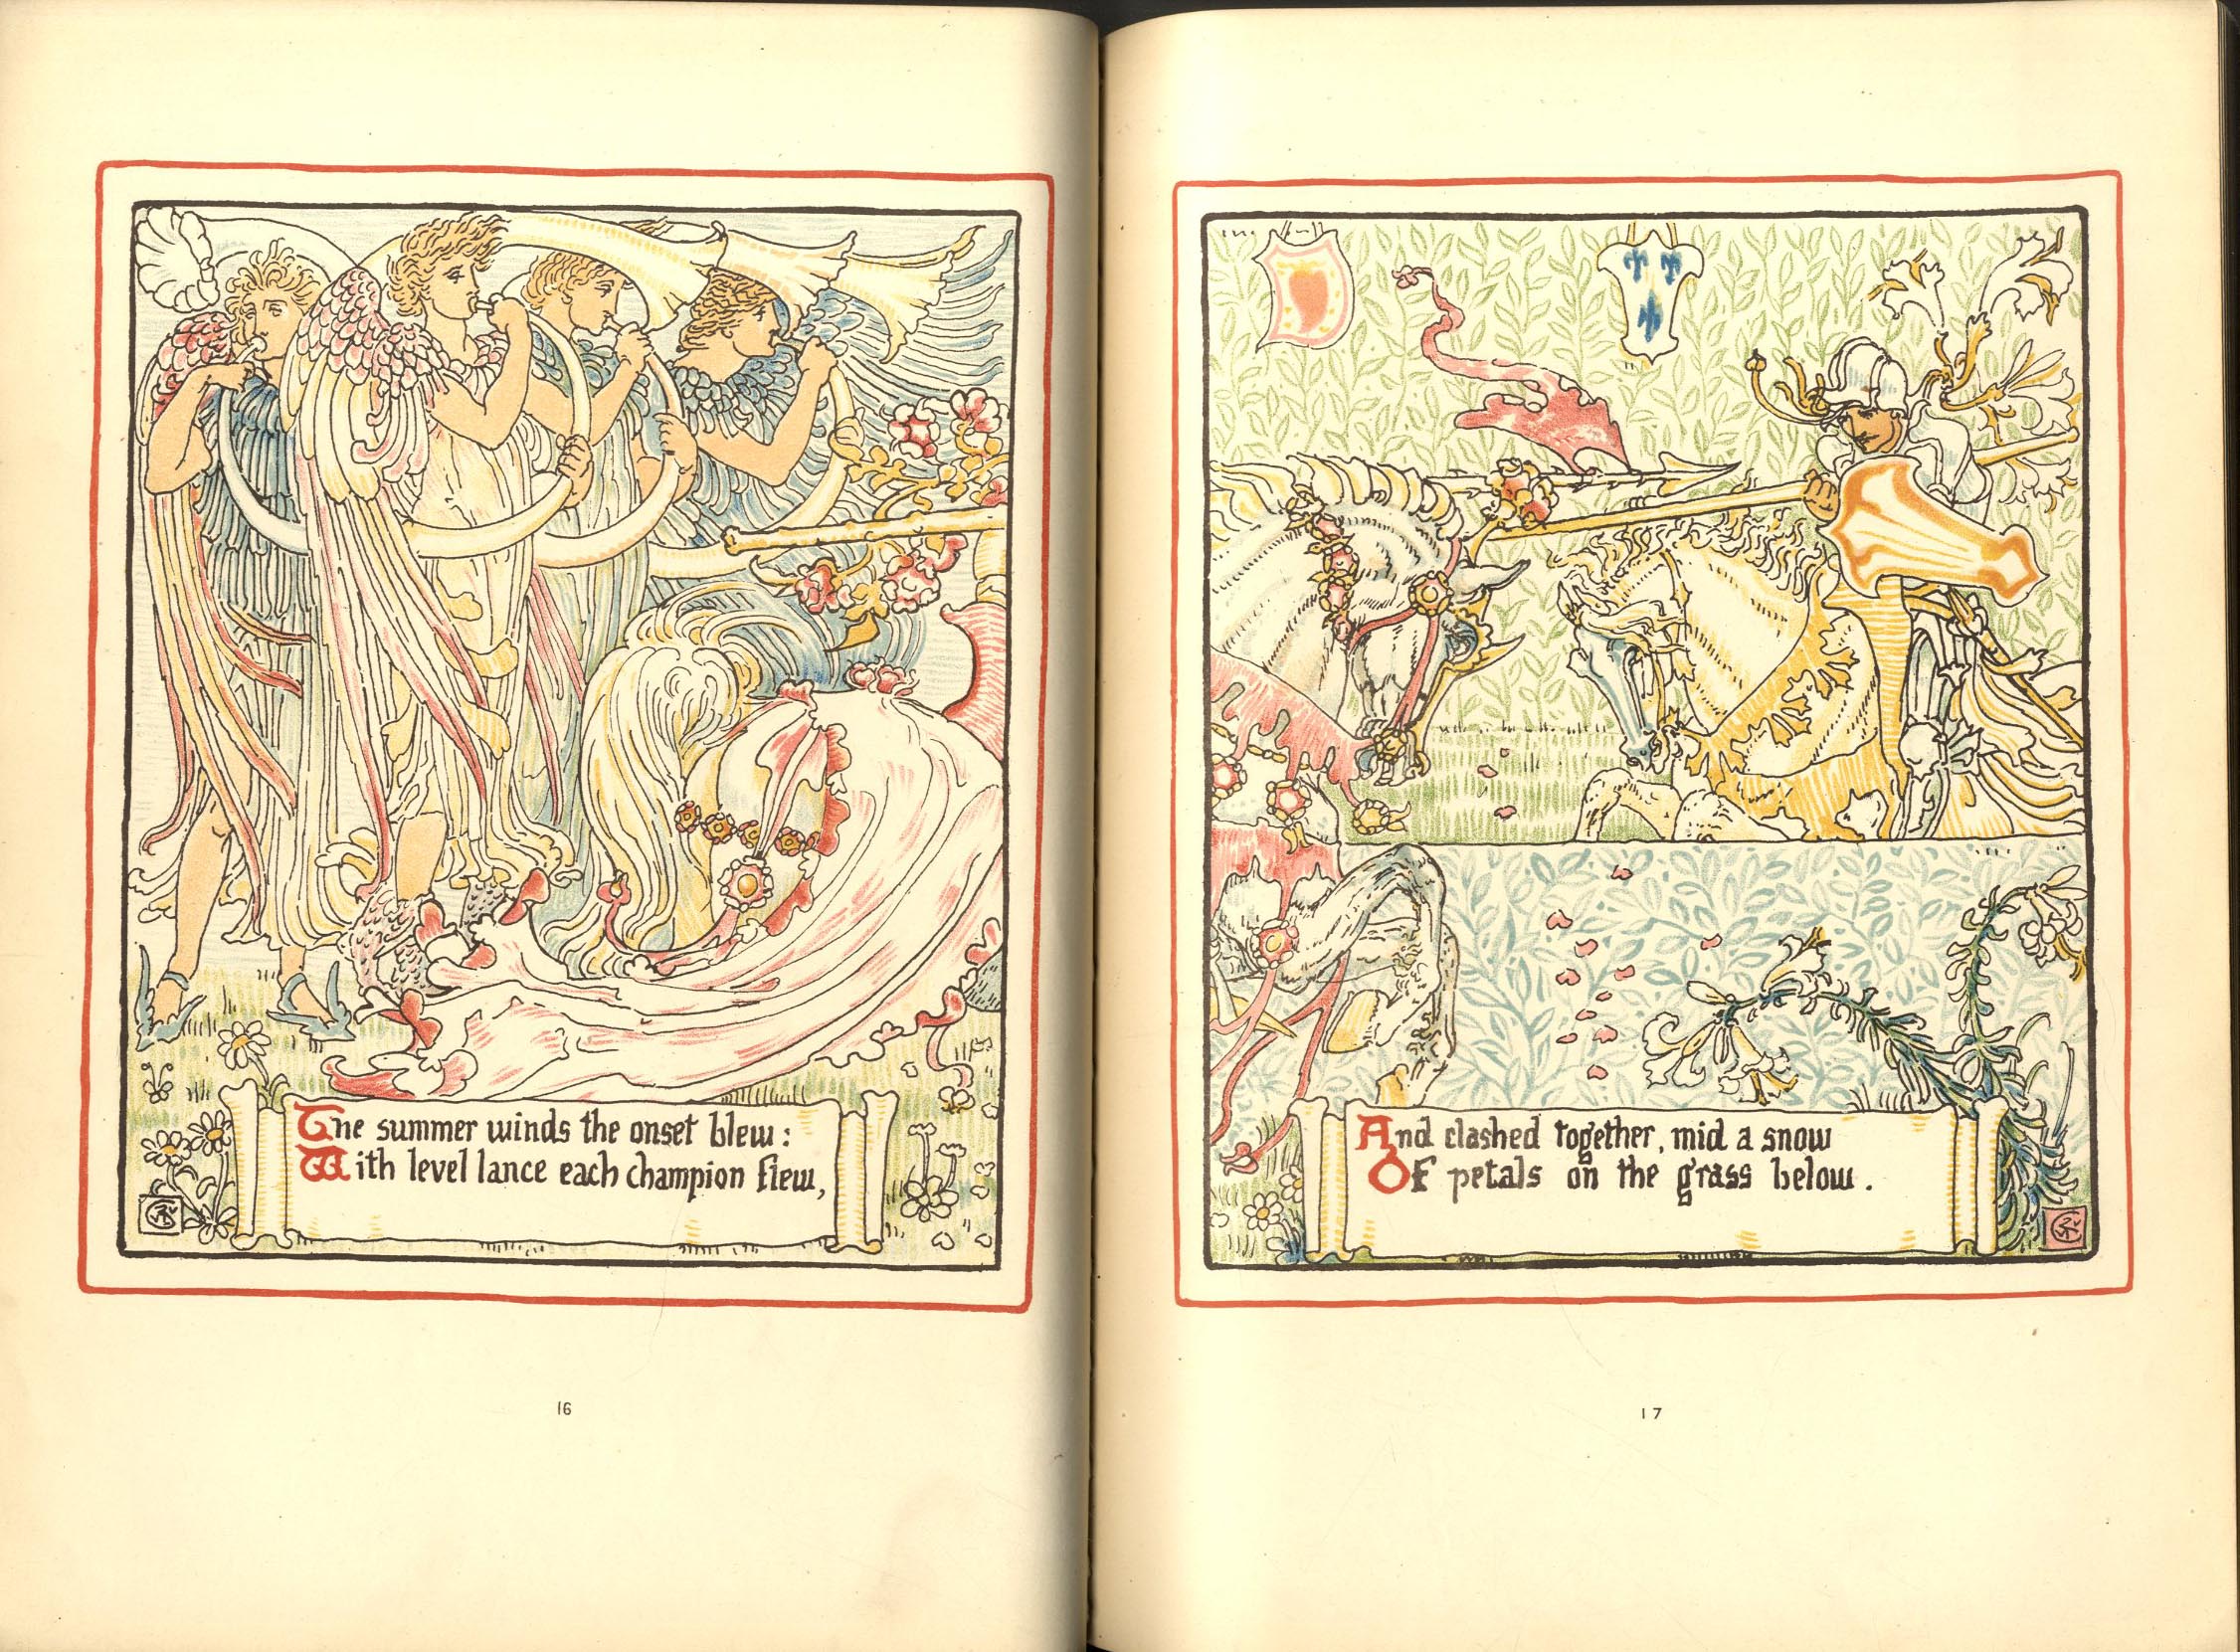 The summer winds the onset blew:
With level lance each champion flew,
16
And clashed together, mid a snow
Of petals on the grass below.
17